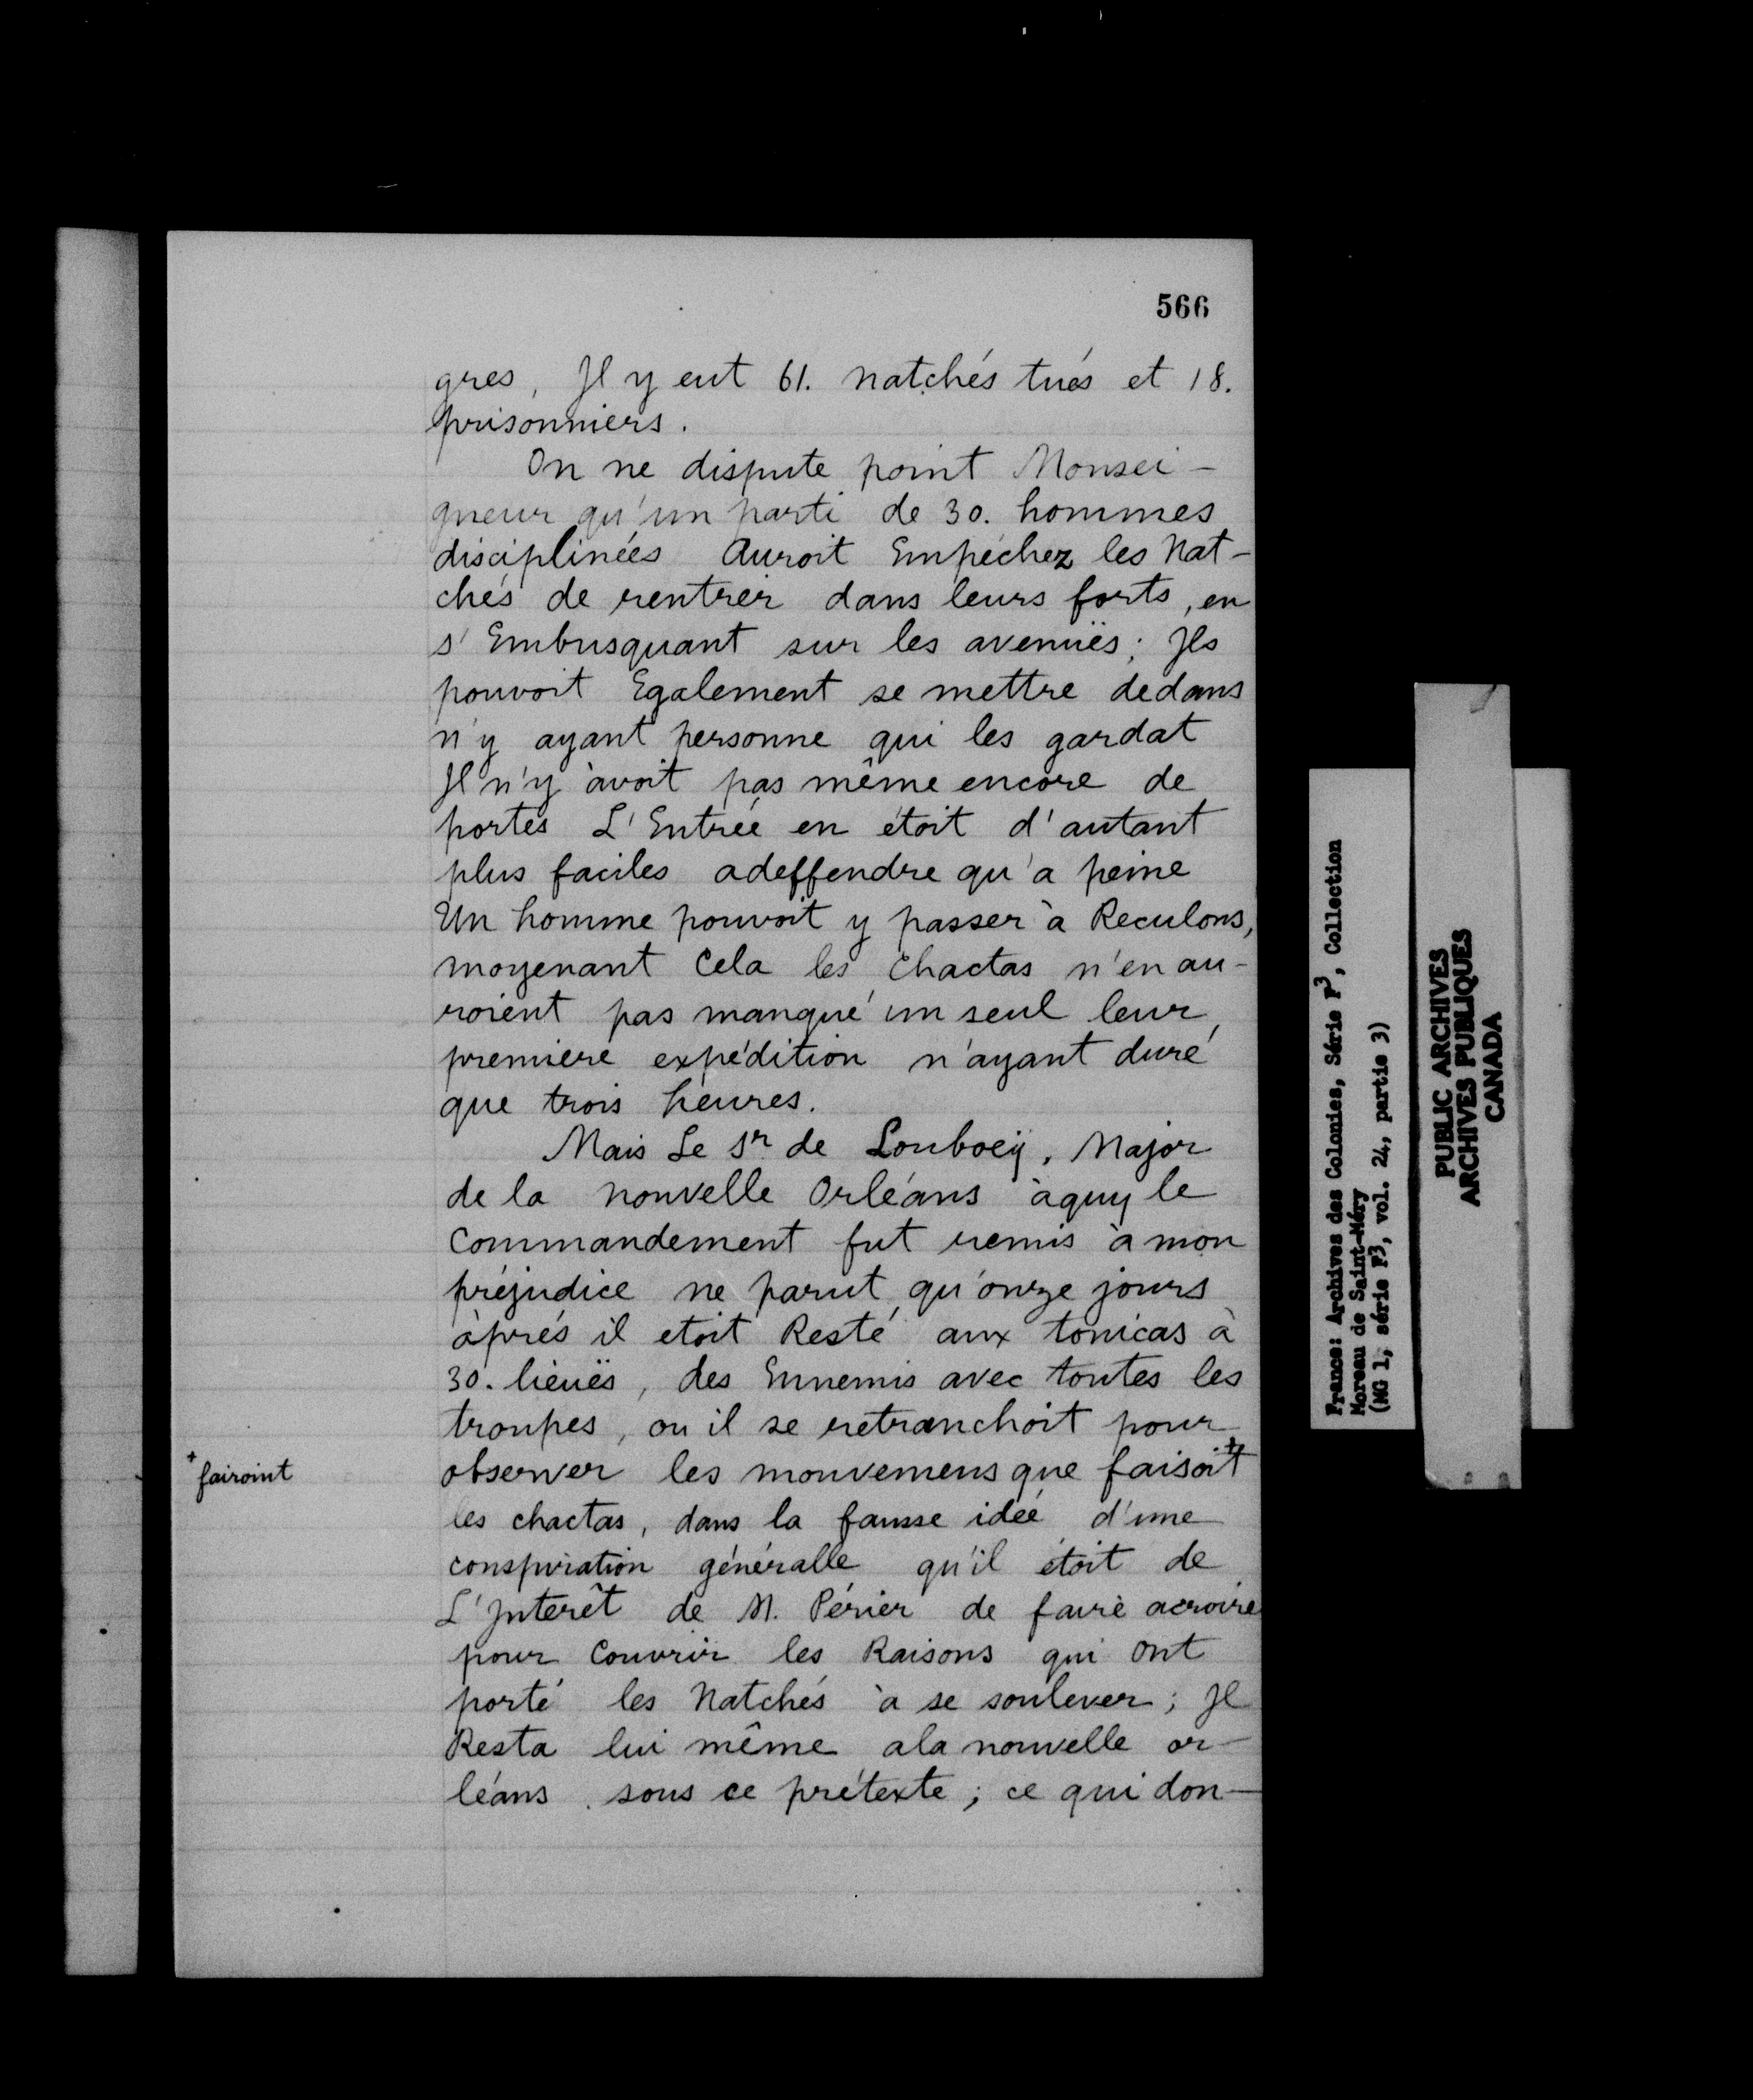 566
gres, Jl y eut 61. natchés tués et 18.
prisonniers.
On ne dispute point Monsei-
gneur qu'un parti de 30. hommes
disciplinées Auroit Empéchez les Nat-
chés de rentrer dans leurs forts, en
s'Embusquant sur les avenuës; Jls
pouvoit Egalement se mettre dedans
n'y ayant personne qui les gardat
Jl n'y avoit pas même encore de
portes L'Entrée en étoit d'autant
plus faciles adeffendre qu'a peine
Un homme pouvoit y passer à Reculons,
moyenant Cela les Chactas n'en au-
roient pas manqué un seul leur
premiere expédition n'ayant duré
que trois heures.
Mais Le Sr de Louboëy, Major
de la nouvelle Orléans àquy le
Commandement fut remis à mon
préjudice ne parut qu'onze jours
àprés il etoit Resté aux tonicas à
30. lieuës, des Ennemis avec toutes les
troupes, ou il se retranchoit pour
observer les mouvemens que faisoit +
+ fairoint
les chactas, dans la fausse idée d'une
conspiration généralle qu'il étoit de
L'Jnterêt de M. Périer de faire acroire
pour Couvrir les Raisons qui ont
porté les Natchés à se soulever; Jl
Resta lui même ala nouvelle or-
léans sous ce prétexte; ce qui don-
France: Archives des Colonies, Série F3, Collection
Moreau de Saint-Méry
(MG 1, série F3, vol. 24, partie 3)
PUBLIC ARCHIVES
ARCHIVES PUBLIQUES
CANADA